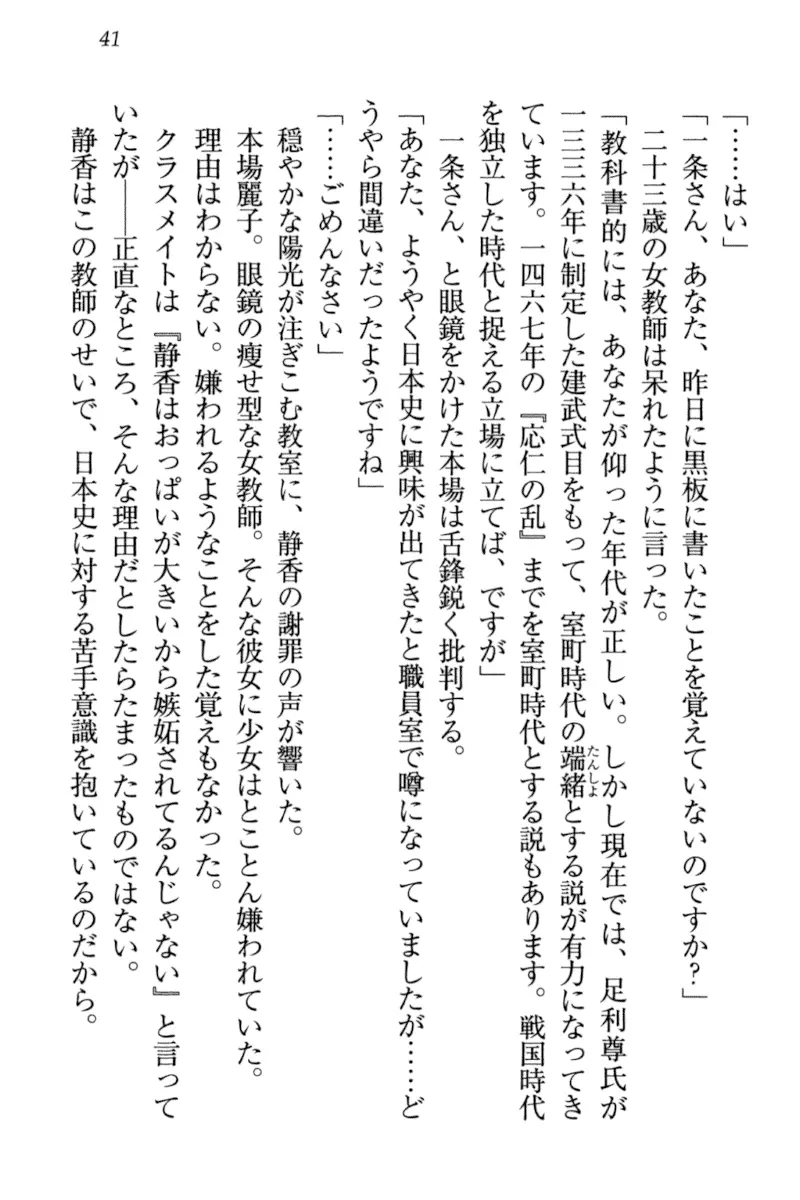 41
「……はい」
「一条さん、あなた、昨日に黒板に書いたことを覚えていないのですか？」
二十三歳の女教師は呆れたように言った。
「教科書的には、あなたが仰った年代が正しい。しかし現在では、足利尊氏が
一三三六年に制定した建武式目をもって、室町時代の端緒とする説が有力になってき
たんしょ
ています。一四六七年の『応仁の乱』までを室町時代とする説もあります。戦国時代
を独立した時代と捉える立場に立てば、ですが」
一条さん、と眼鏡をかけた本場は舌鋒鋭く批判する。
「あなた、ようやく日本史に興味が出てきたと職員室で噂になっていましたが……ど
うやら間違いだったようですね」
「……ごめんなさい」
穏やかな陽光が注ぎこむ教室に、静香の謝罪の声が響いた。
本場麗子。眼鏡の痩せ型な女教師。そんな彼女に少女はとことん嫌われていた。
理由はわからない。嫌われるようなことをした覚えもなかった。
クラスメイトは『静香はおっぱいが大きいから嫉妬されてるんじゃない』と言って
いたが――正直なところ、そんな理由だとしたらたまったものではない。
静香はこの教師のせいで、日本史に対する苦手意識を抱いているのだから。